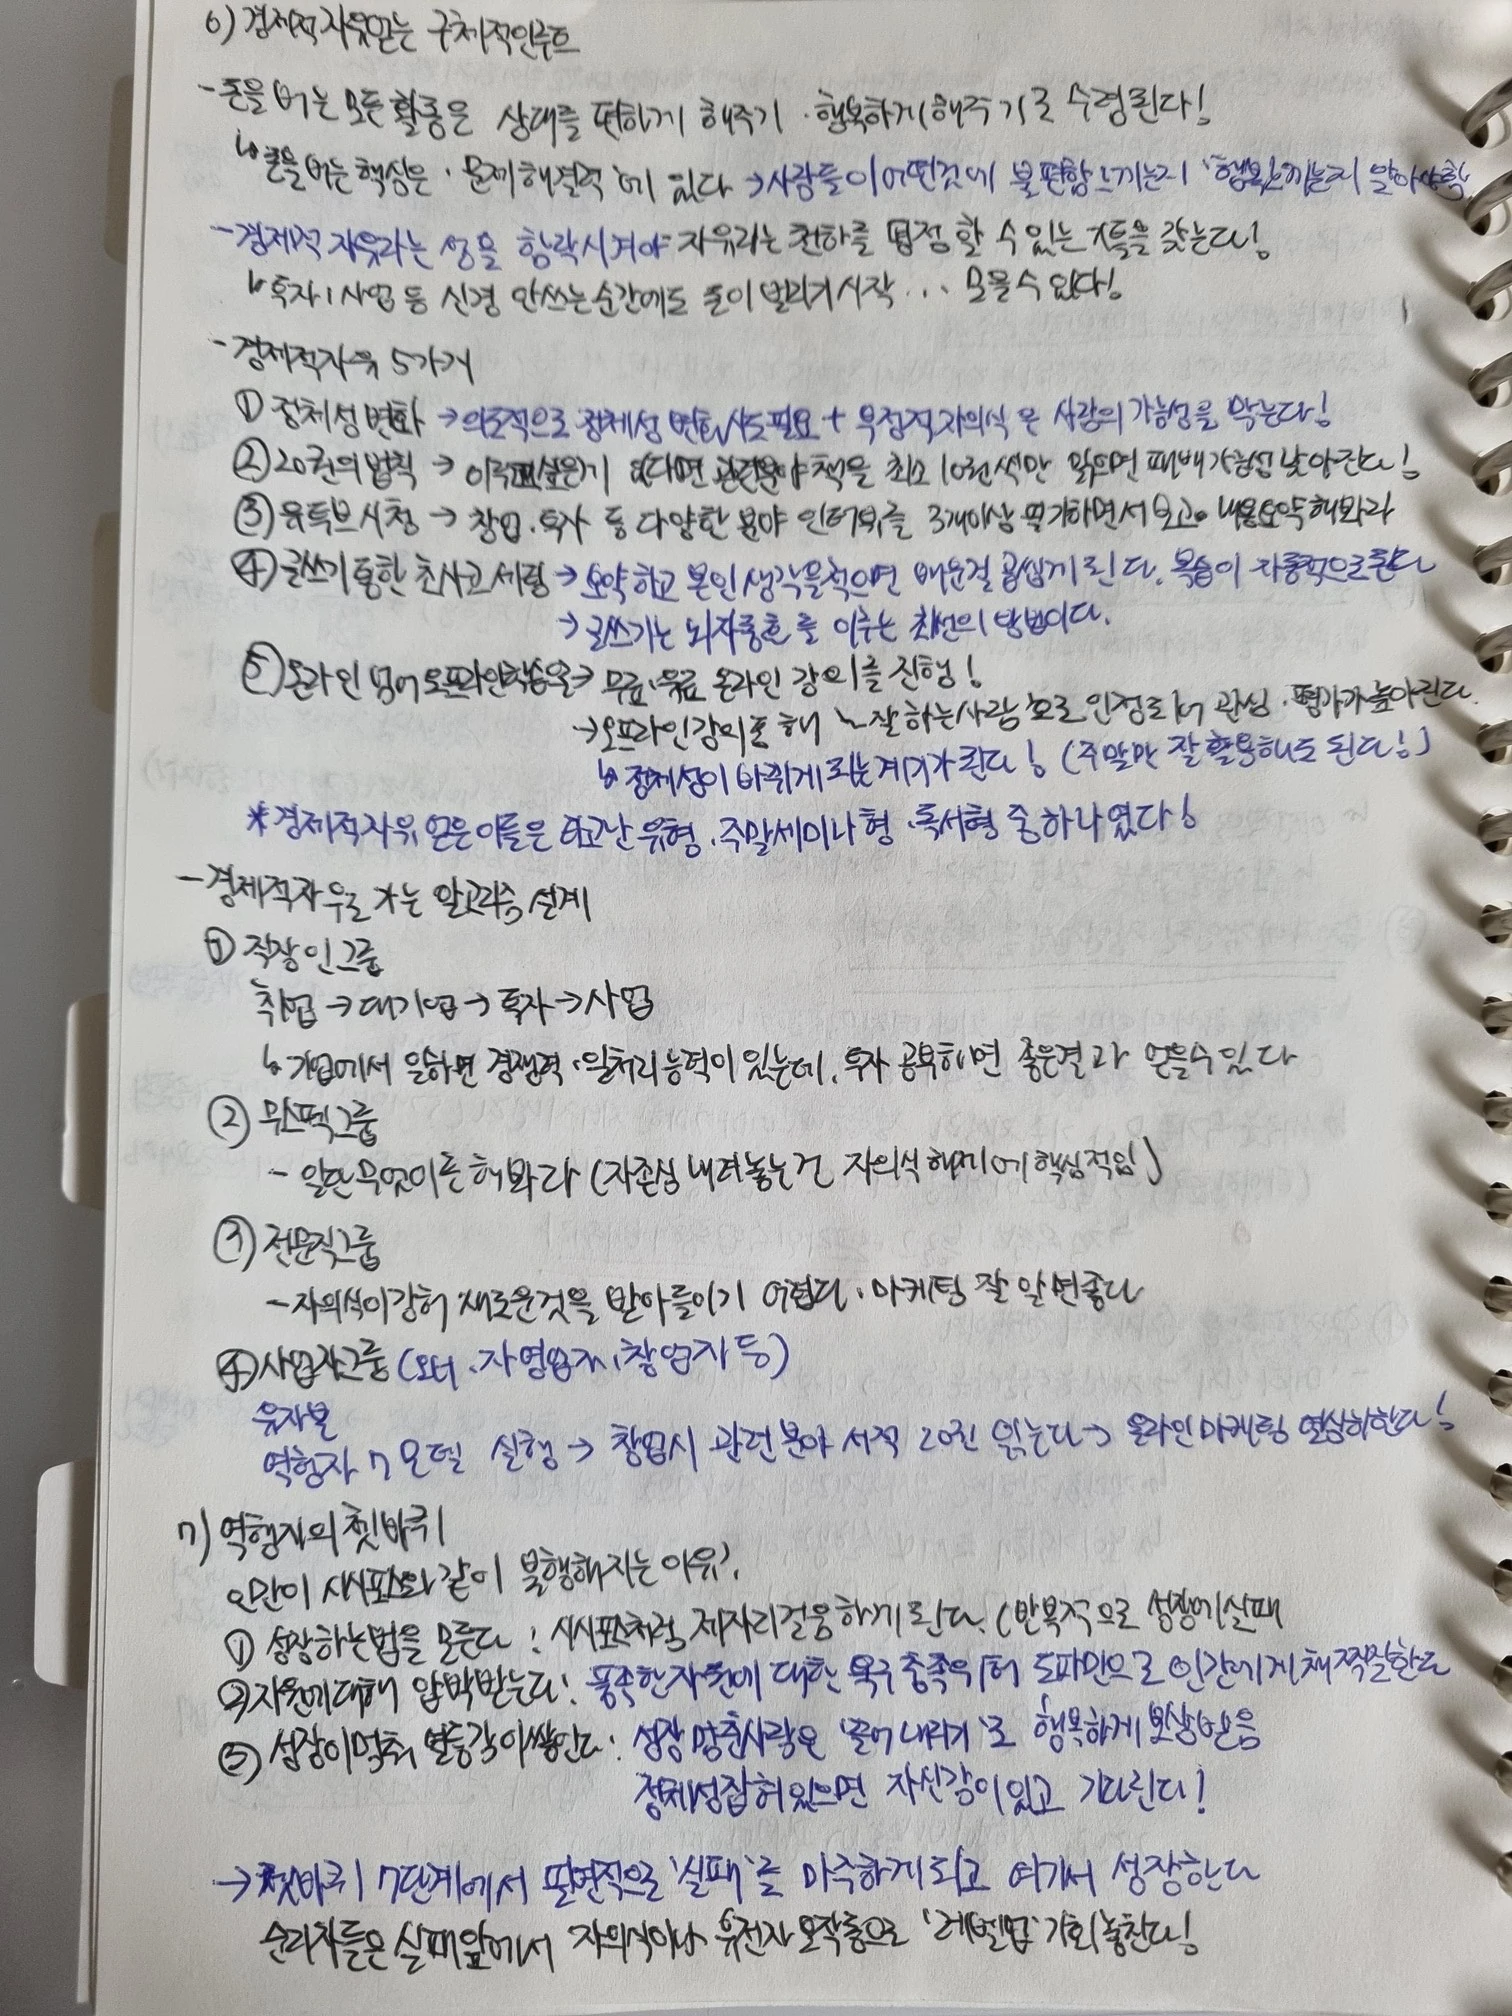 6) 경제적 자유 얻는 구체적인 루트
- 돈을 버는 모든 활동은 상대를 편하게 해주기·행복하게 해주기로 수렴된다!
↳ 돈을 버는 핵심은 '문제해결력'에 있다 → 사람들이 어떤것에 불편함 느끼는지 행복느끼는지 알아야함
- 경제적 자유라는 성을 함락시켜야 자유라는 천하를 평정할 수 있는 키를 갖는다!
↳ 투자, 사업 등 신경 안쓰는 순간에도 돈이 벌리기 시작 ... 모을 수 있다!
- 경제적자유 5가지
① 정체성 변화 → 의도적으로 정체성 변화시도 필요 + 무정적 자의식은 사람의 가능성을 막는다!
② 20권의 법칙 → 이루고싶은게 있다면 관련분야 책을 최소 10권씩만 읽으면 패배가능성 낮아진다!
③ 유튜브 시청 → 창업·투자 등 다양한 분야 인터뷰를 3개이상 필기하면서 보고 내용요약해봐라
④ 글쓰기 통한 초사고 세팅 → 요약하고 본인 생각을 적으면 배운걸 곱씹게 된다. 복습이 자동적으로 된다
→ 글쓰기는 뇌자동화를 이루는 최선의 방법이다.
⑤ 온라인 넘어 오프라인학습을 → 무료·유료 온라인 강의를 진행!
→ 오프라인강의 통해 ~잘하는사람으로 인정되어 관심·평가가 높아진다
↳ 정체성이 바뀌게 되는 계기가 된다! (주말만 잘 활용해도 된다!)
* 경제적자유 얻은 이들은 타고난 유형·주말세미나형·독서형 중 하나였다!
- 경제적자유로 가는 알고리즘 설계
① 직장인그룹
취업 → 대기업 → 투자 → 사업
↳ 기업에서 일하면 경쟁력·일처리능력이 있는데, 투자 공부하면 좋은결과 얻을수있다
② 무스펙그룹
- 일단 무엇이든 해봐라 (자존심 내려놓는건 자의식 해체에 핵심적임)
③ 전문직그룹
- 자의식이 강해 새로운것을 받아들이기 어렵다. 마케팅 잘 알면좋다
④ 사업자그룹 (오너·자영업자, 창업자 등)
유자본
역행자 7모델 실행 → 창업시 관련분야 서적 20권 읽는다 → 온라인마케팅 열심히한다!
7) 역행자의 쳇바퀴
인간이 시시포스와 같이 불행해지는 이유?
① 성장하는법을 모른다 : 시시포스처럼 제자리걸음하게 된다. (반복적으로 성장에실패
② 자원에대해 압박받는다: 풍족한자원에 대한 욕구충족위해 도파민으로 인간에게 채찍질한다
③ 성장이멈춰 열등감이쌓인다: 성장 멈춘사람은 '끌어내리기'로 행복하게 보상받음
정체성잡혀있으면 자신감이있고 기다린다!
→ 쳇바퀴 7단계에서 필연적으로 '실패'를 마주하게되고 여기서 성장한다
순리자들은 실패앞에서 자의식이나 유전자 오작동으로 '레벨업' 기회 놓친다!